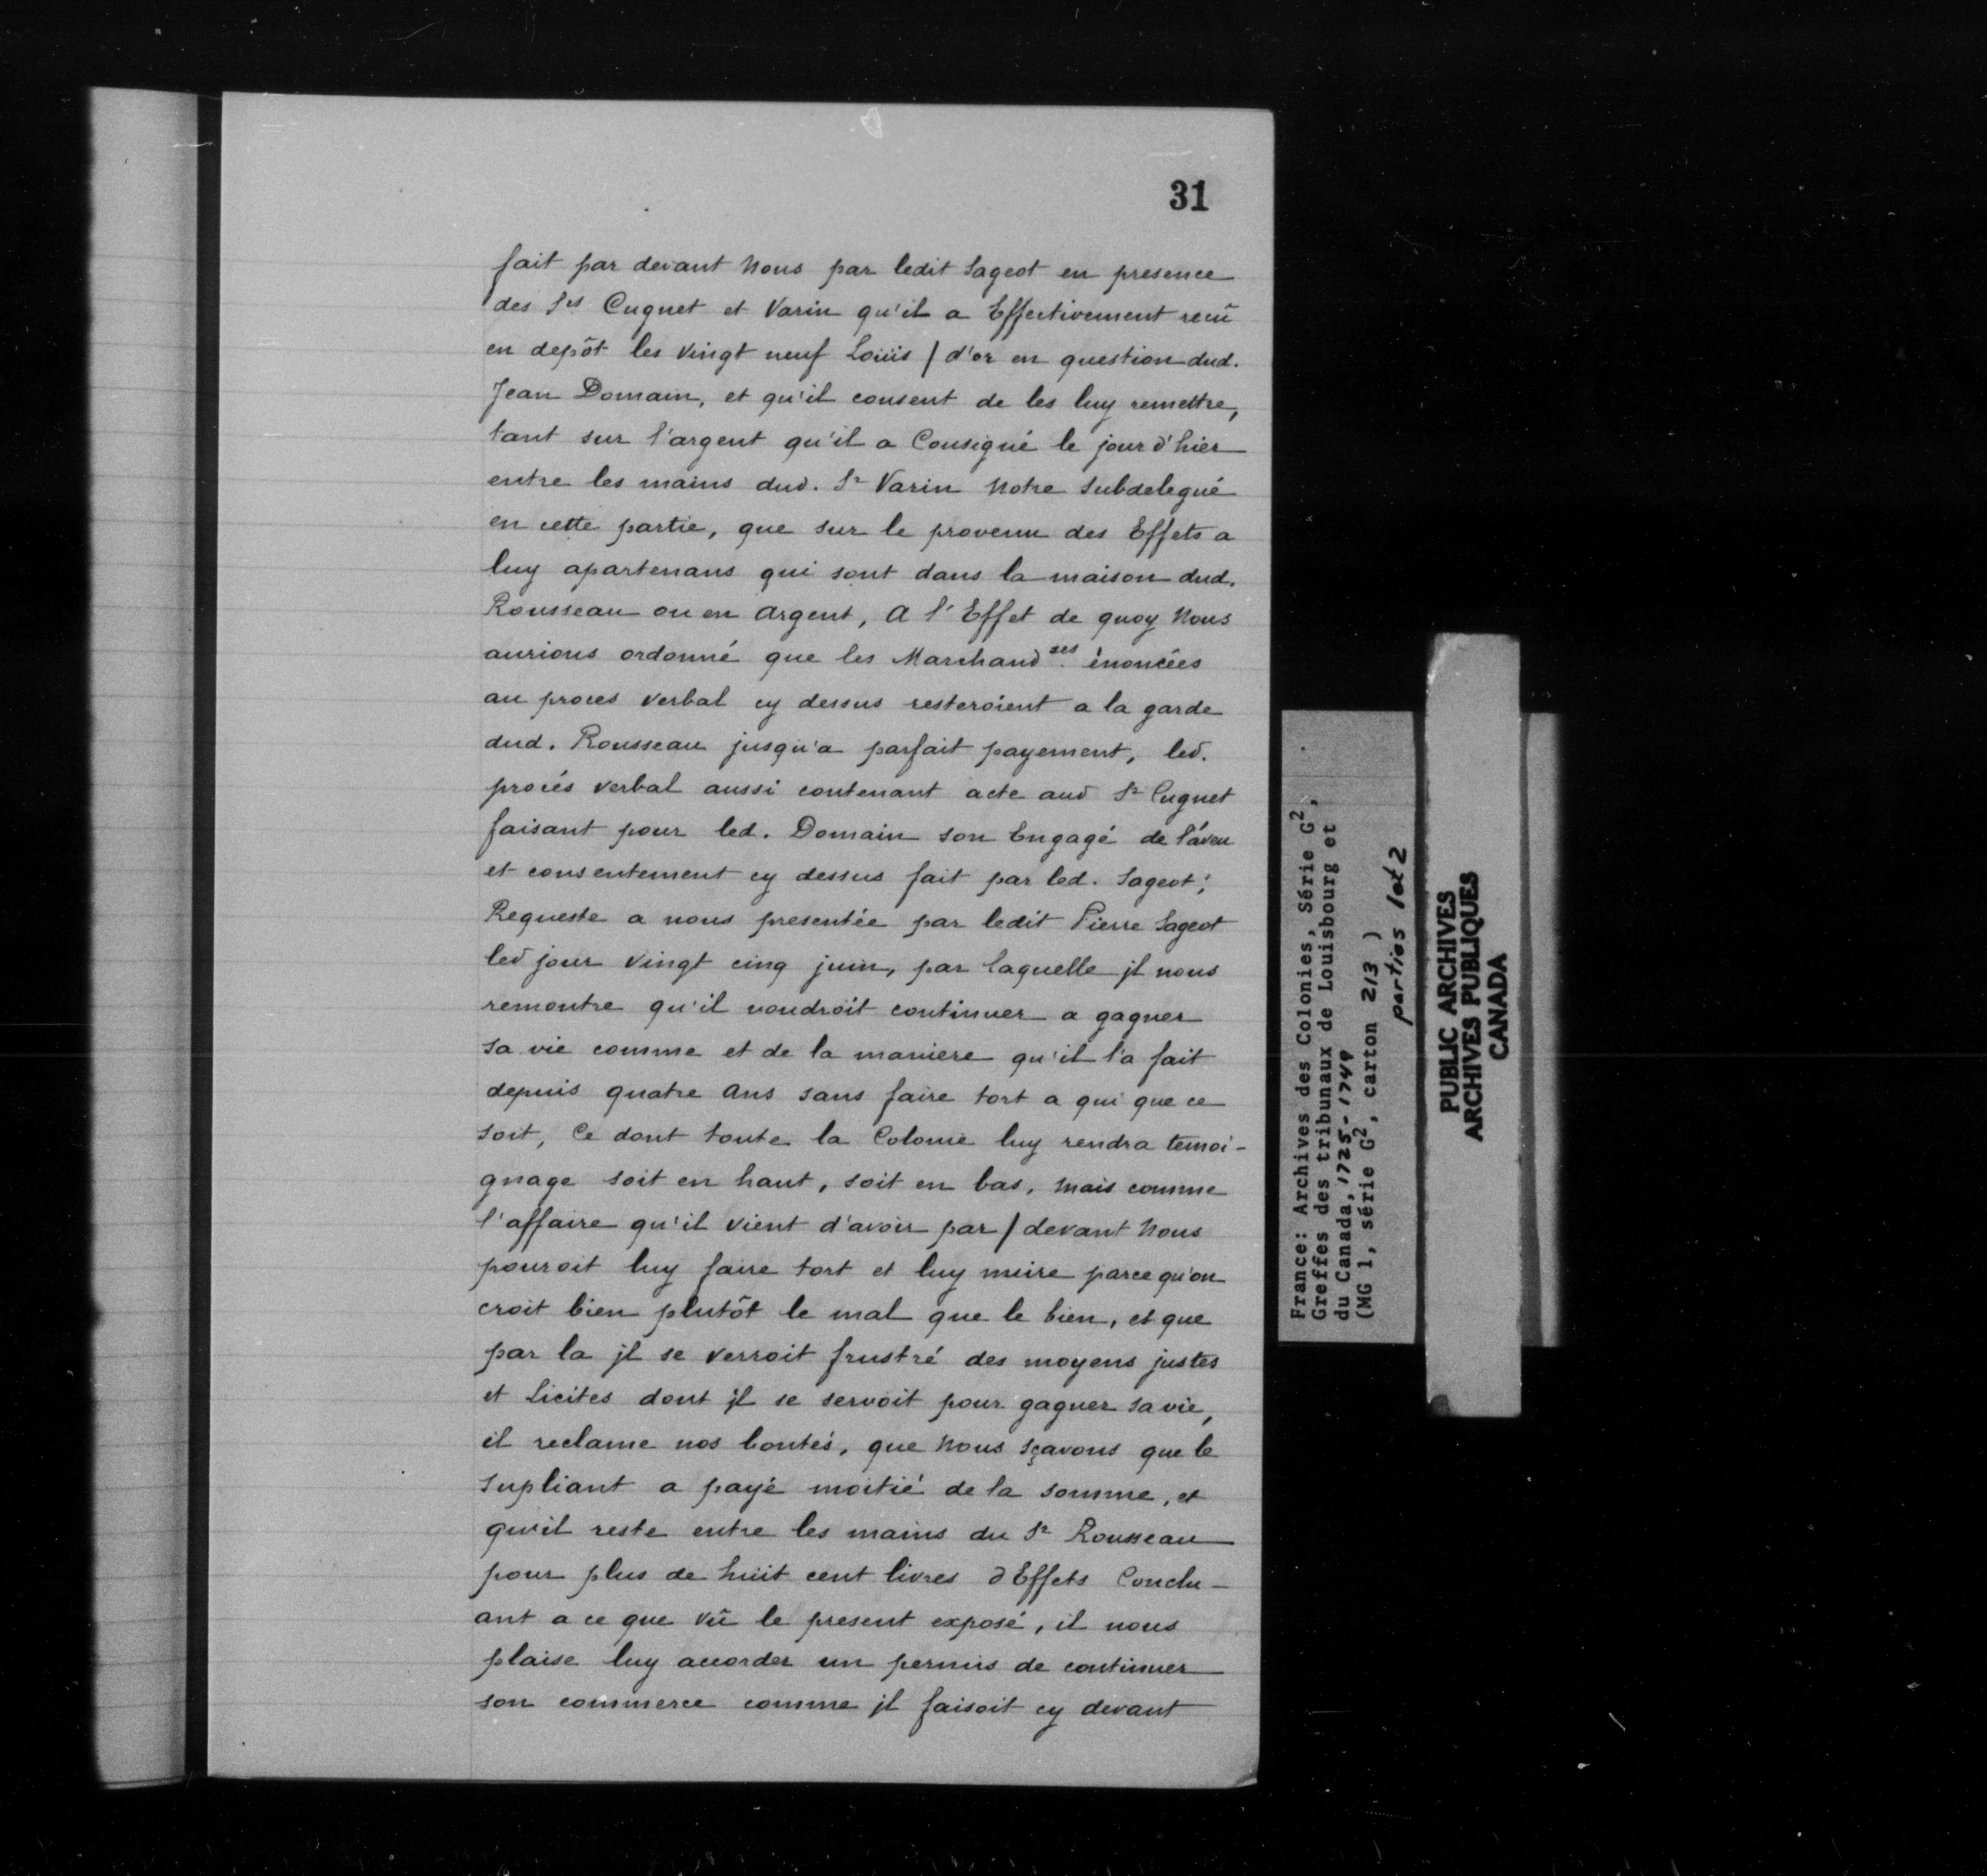 31
fait par devant Nous par ledit Sageot en presence
des Srs Cugnet et Varin qu'il a Effectivement reçû
en depôt les Vingt neuf Loüis / d'or en question dud.
Jean Domain, et qu'il consent de les luy remettre,
tant sur l'argent qu'il a Consigné le jour d'hier
entre les mains dud. Sr Varin Notre Subdelegué
en cette partie, que sur le provenu des Effets a
luy apartenans qui sont dans la maison dud.
Rousseau ou en argent, A l'Effet de quoy Nous
aurions ordonné que les Marchand.ses énoncées
au proces verbal cy dessus resteroient a la garde
dud. Rousseau jusqu'a parfait payement, led.
procés verbal aussi contenant acte aud Sr Cugnet
faisant pour led. Domain son Engagé de l'áveu
et consentement cy dessus fait par led. Sageot;
Requeste a nous presentée par ledit Pierre Sageot
led jour vingt cinq juin, par laquelle jl nous
remontre qu'il voudroit continuer a gagner
sa vie comme et de la maniere qu'il l'a fait
depuis quatre ans sans faire tort a qui que ce
soit, Ce dont toute la Colonie luy rendra temoi-
gnage soit en haut, soit en bas, Mais comme
l'affaire qu'il vient d'avoir par / devant Nous
pouroit luy faire tort et luy nuire parce qu'on
croit bien plutôt le mal que le bien, et que
par la jl se verroit frustré des moyens justes
et Licites dont jl se servoit pour gagner sa vie,
il reclame nos bontés, que Nous sçavons que le
supliant a payé moitié de la somme, et
qu'il reste entre les mains du Sr Rousseau
pour plus de huit cent livres d'Effets Conclu-
ant a ce que Vû le present exposé, il nous
plaise luy accorder un permis de continuer
son commerce comme jl faisoit cy devant
France: Archives des Colonies, Série G2,
Greffes des tribunaux de Louisbourg et
du Canada, 1725-1749
(MG 1, série G2, carton 213 )
parties 1et 2
PUBLIC ARCHIVES
ARCHIVES PUBLIQUES
CANADA